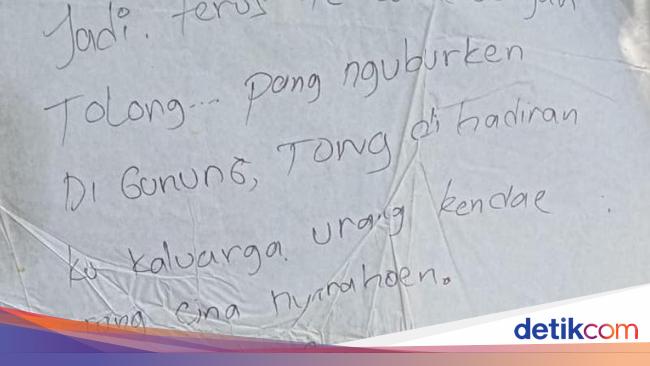 Jadi. terus
Tolong... pang nguburken
Di Gunung, Tong di hadiran
ku kaluarga urang kendae
ming cina nyarahoen.
detikcom